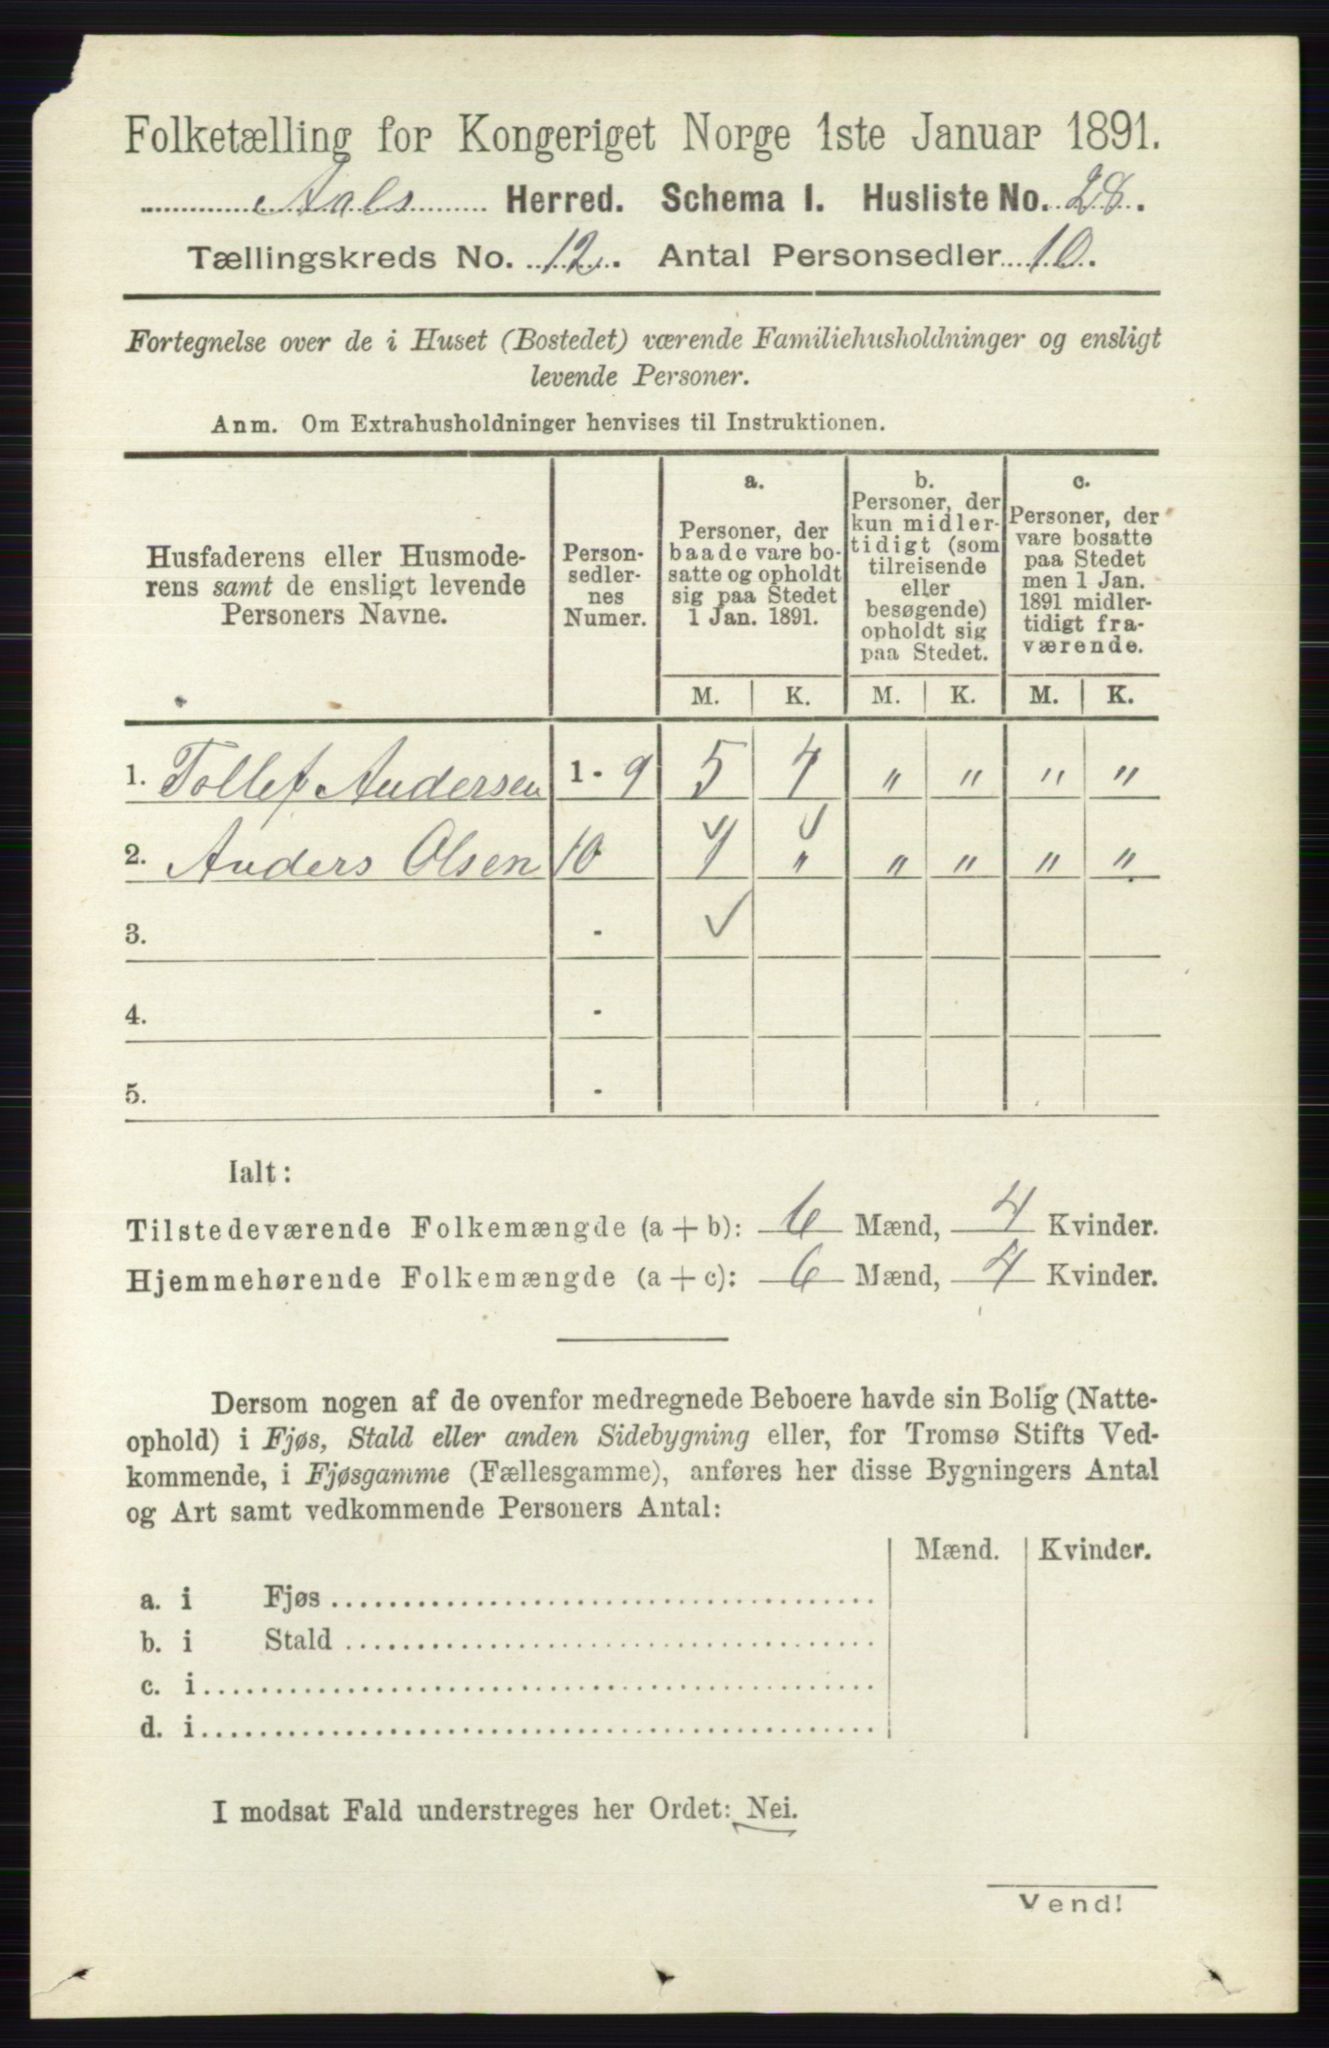 Folketælling for Kongeriget Norge 1ste Januar 1891.
Aals Herred. Schema I. Husliste No. 28.
Tællingskreds No. 12. Antal Personsedler 10.
Fortegnelse over de i Huset (Bostedet) værende Familiehusholdninger og ensligt
levende Personer.
Anm. Om Extrahusholdninger henvises til Instruktionen.
Husfaderens eller Husmode-
rens samt de ensligt levende
Personers Navne.
Person-
sedler-
nes
Numer.
a.
Personer, der
baade vare bo-
satte og opholdt
sig paa Stedet
1 Jan. 1891.
b.
Personer, der
kun midler-
tidigt (som
tilreisende
eller
besøgende)
opholdt sig
paa Stedet.
c.
Personer, der
vare bosatte
paa Stedet
men 1 Jan.
1891 midler-
tidigt fra-
værende.
M. K. M. K. M. K.
1. Tollef Andersen 1 - 9 5 4 " " " "
2. Anders Olsen 10 1 " " " " "
3. - ✓
4. -
5. -
Ialt:
Tilstedeværende Folkemængde (a + b): 6 Mænd, 4 Kvinder.
Hjemmehørende Folkemængde (a + c): 6 Mænd, 4 Kvinder.
Dersom nogen af de ovenfor medregnede Beboere havde sin Bolig (Natte-
ophold) i Fjøs, Stald eller anden Sidebygning eller, for Tromsø Stifts Ved-
kommende, i Fjøsgamme (Fællesgamme), anføres her disse Bygningers Antal
og Art samt vedkommende Personers Antal:
Mænd. Kvinder.
a. i Fjøs
b. i Stald
c. i
d. i
I modsat Fald understreges her Ordet: Nei.
Vend!